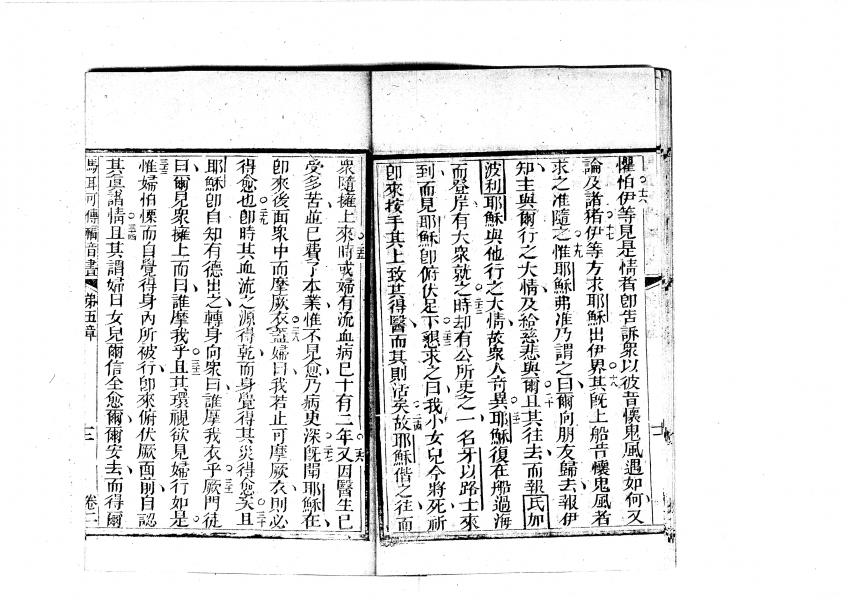 懼怕伊等見是情者即告訴衆以彼昔懷鬼風遇如何又
論及諸猪伊等方求耶穌出伊界其既上船昔懷鬼風者
求之准隨之惟耶穌弗准乃謂之曰爾向朋友歸去報伊
知主與爾行之大情及給慈悲與爾且其往去而報氏加
波利耶穌與他行之大情故衆人奇異耶穌復在船過海
而登岸有大衆就之時却有公所吏之一名牙以路士來
到而見耶穌即俯伏足下懇求之曰我小女兒今將死祈
即來按手其上致其得醫而其則活矣故耶穌偕之往而
衆隨擁上來時或婦有流血病已十有二年又因醫生已
受多苦並已費了本業惟不見愈乃病更深既聞耶穌在
即來後面衆中而摩厥衣蓋婦曰我若止可摩厥衣則必
得愈也即時其血流之源得乾而身覺得其災得愈矣且
耶穌即自知有德出之轉身向衆曰誰摩我衣乎厥門徒
曰爾見衆擁上而曰誰摩我乎且其環視欲見婦行如是
惟婦怕慄而自覺得身內所被行即來俯伏厥面前自認
其眞諸情且其謂婦曰女兒爾信全愈爾爾安去而得爾
馬耳可傳福音書 第五章 十二 卷二